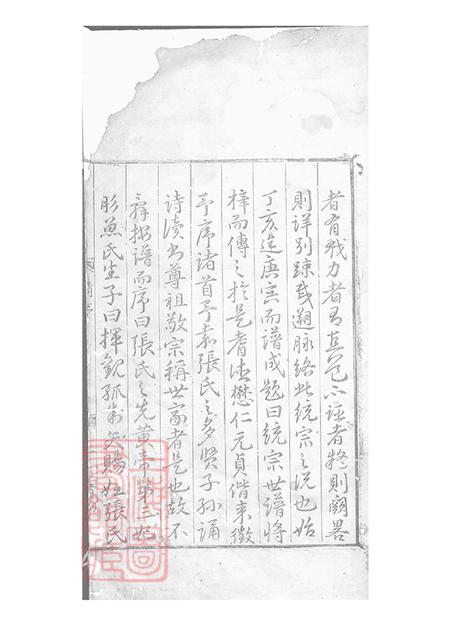 者有戕力者為真已不誣者疑則闕畧
則詳別踈戚遡脉絡此統宗之說也始
丁亥迄庚寅而譜成題曰統宗世譜将
梓而傳之於是耆德懋仁元貞偕来徵
予序諸首予嘉張氏之多賢子孫誦
詩讀書尊祖敬宗稱世家者是也故不
辞按譜而序曰張氏之先黄帝第三妃
彤魚氏生子曰揮觀弧制矢賜姓張氏